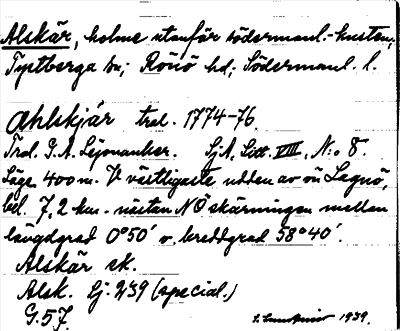 Alskär, holme utanför södermanl.-kusten,
Tystberga sn; Rönö hd; Södermanl. l.
Ahlskjär trol. 1774-76
Trol. G.A. Lejonancker. SjA, Litt. VIII, N:o 8.
Läge 400 m. V västligaste udden av ön Langö,
bel. 7,2 km. nästan NO skärningen mellan
längdgrad 0°50' o. breddgrad 58°40'.
Alskär sk.
Alsk. Sj. 239 (special.)
G. 57.
1939.